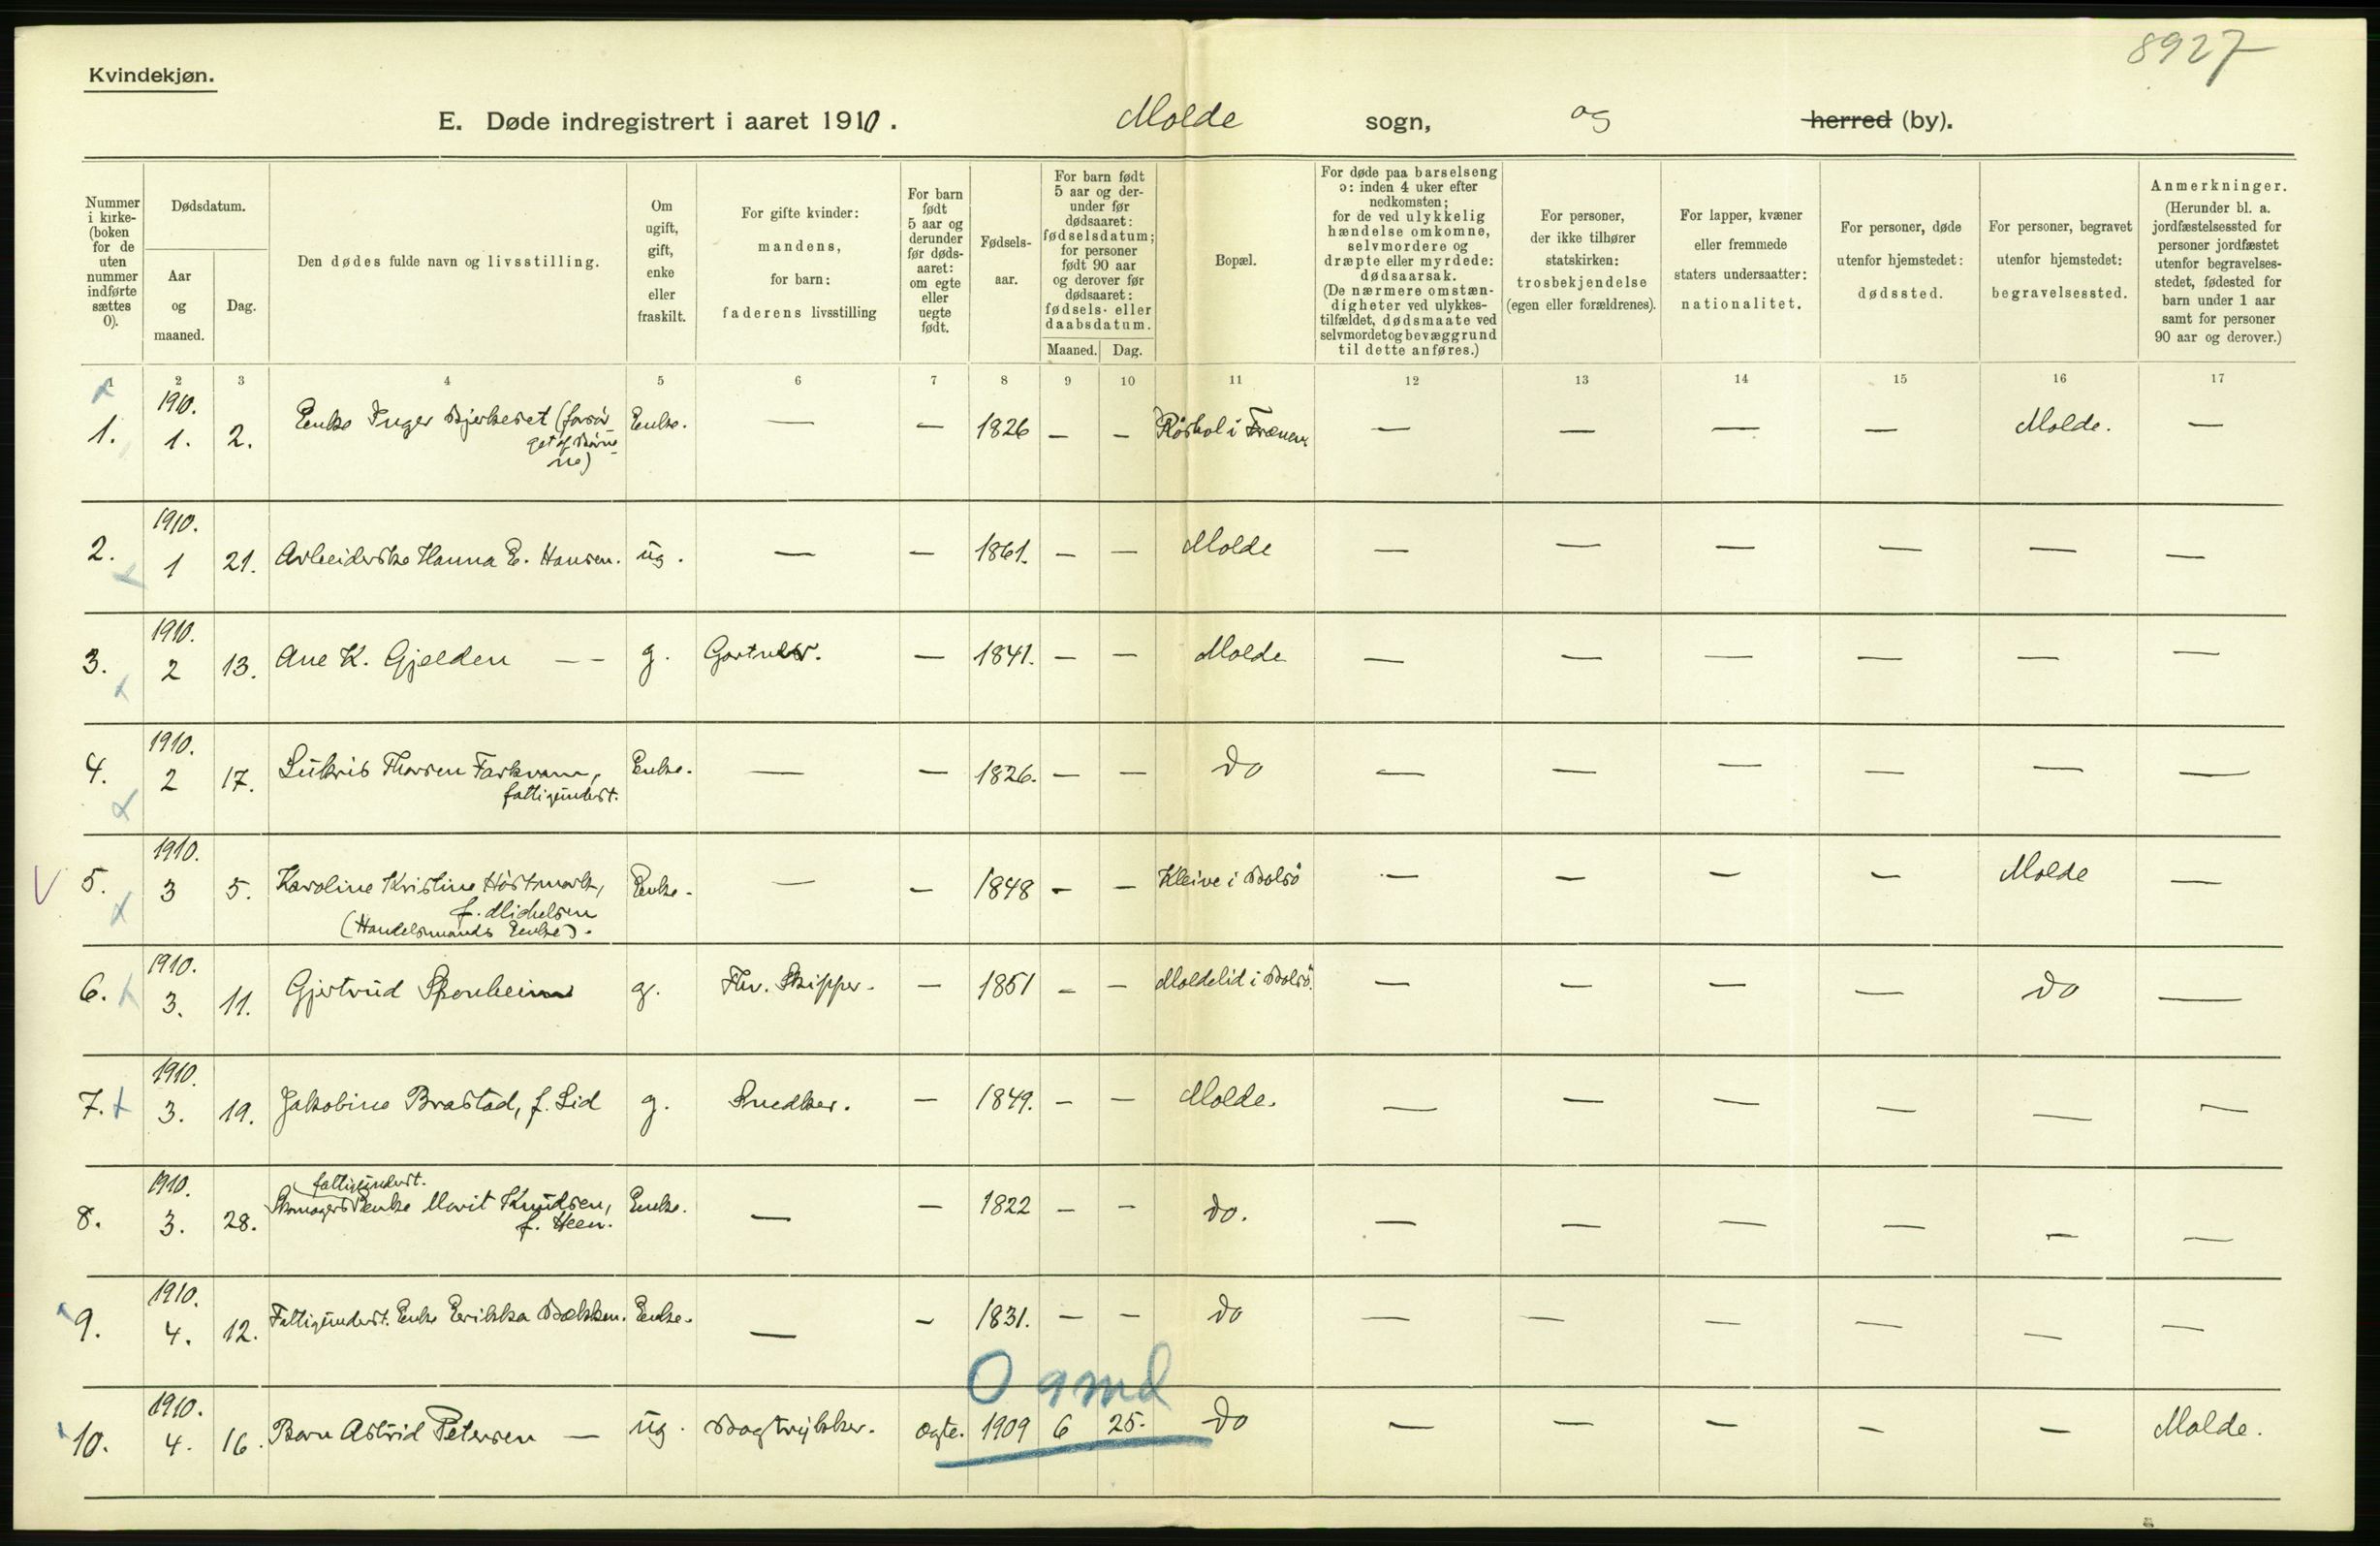 8927
Kvindekjøn.
E. Døde indregistrert i aaret 1910. Molde sogn, og herred (by).
Nummer i kirkeboken (for de uten nummer indførte sættes 0).
Dødsdatum.
Aar og maaned.
Dag.
Den dødes fulde navn og livsstilling.
Om ugift, gift, enke eller fraskilt.
For gifte kvinder: mandens, for barn: faderens livsstilling
For barn født 5 aar og derunder før dødsaaret: om egte eller uegte født.
Fødselsaar.
For barn født 5 aar og derunder før dødsaaret: fødselsdatum; for personer født 90 aar og derover før dødsaaret: fødsels- eller daabsdatum.
Maaned. Dag.
Bopæl.
For døde paa barselseng ɔ: inden 4 uker efter nedkomsten; for de ved ulykkelig hændelse omkomne, selvmordere og dræpte eller myrdede: dødsaarsak. (De nærmere omstændigheter ved ulykkestilfældet, dødsmaate ved selvmordet og bevæggrund til dette anføres.)
For personer, der ikke tilhører statskirken: trosbekjendelse (egen eller forældrenes).
For lapper, kvæner eller fremmede staters undersaatter: nationalitet.
For personer, døde utenfor hjemstedet: dødssted.
For personer, begravet utenfor hjemstedet: begravelsessted.
Anmerkninger. (Herunder bl. a. jordfæstelsessted for personer jordfæstet utenfor begravelsesstedet, fødested for barn under 1 aar samt for personer 90 aar og derover.)
1 2 3 4 5 6 7 8 9 10 11 12 13 14 15 16 17
1. 1910. 1. 2. Enke Inger Bjerkeset (forsørget af Børnene) Enke. — — 1826 — — Røshol i Frænen — — — — Molde. —
2. 1910. 1 21. Arbeiderske Hanna E. Hansen. ug. — — 1861. — — Molde — — — — — —
3. 1910. 2 13. Ane K. Gjelden — — g. Gartner. — 1841. — — Molde — — — — — —
4. 1910. 2 17. Lukris Thorsen Farkvam, fattigunderst. Enke. — — 1826. — — do — — — — — —
5. 1910. 3 5. Karoline Kristine Höstmark, f. Michelsen (Handelsmands Enke). Enke. — — 1848 — — Kleive i Bolsö — — — — Molde —
6. 1910. 3. 11. Gjertrud Sponheim g. Fhv. Skipper. — 1851 — — Moldelid i Bolsö. — — — — do —
7. 1910. 3. 19. Jakobine Brastad, f. Lid g. Snedker. — 1849. — — Molde. — — — — — —
8. 1910. 3. 28. fattigunderst. Skomagers Enke Marit Knudsen, f. Heen. Enke. — — 1822 — — do. — — — — — —
9. 1910. 4. 12. Fattigunderst. Enke Erikka Bakken. Enke. — — 1831. — — do — — — — — —
0 9 md
10. 1910. 4. 16. Barn Astrid Petersen — ug. Bogtrykker. ægte. 1909 6 25. do — — — — — Molde.